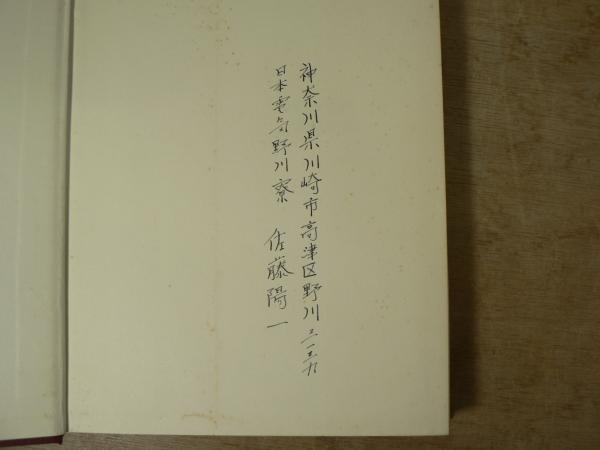 神奈川県川崎市高津区野川三一五九
日本電気野川寮 佐藤陽一